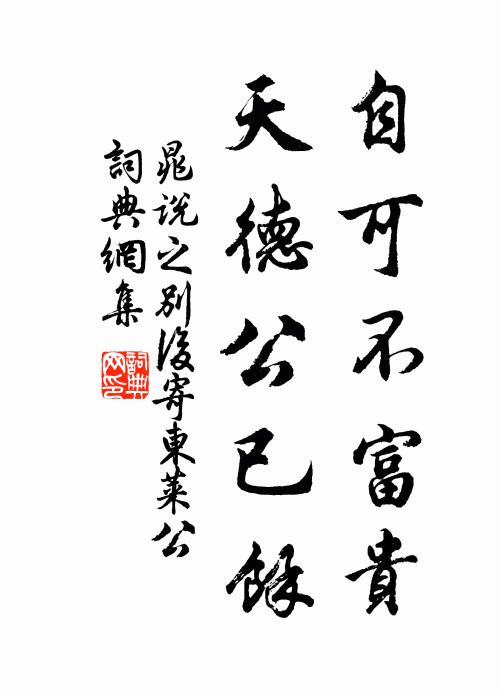 自可不富貴
天德公已餘
晁說之別後寄東萊公
詞典網集
詞典網印